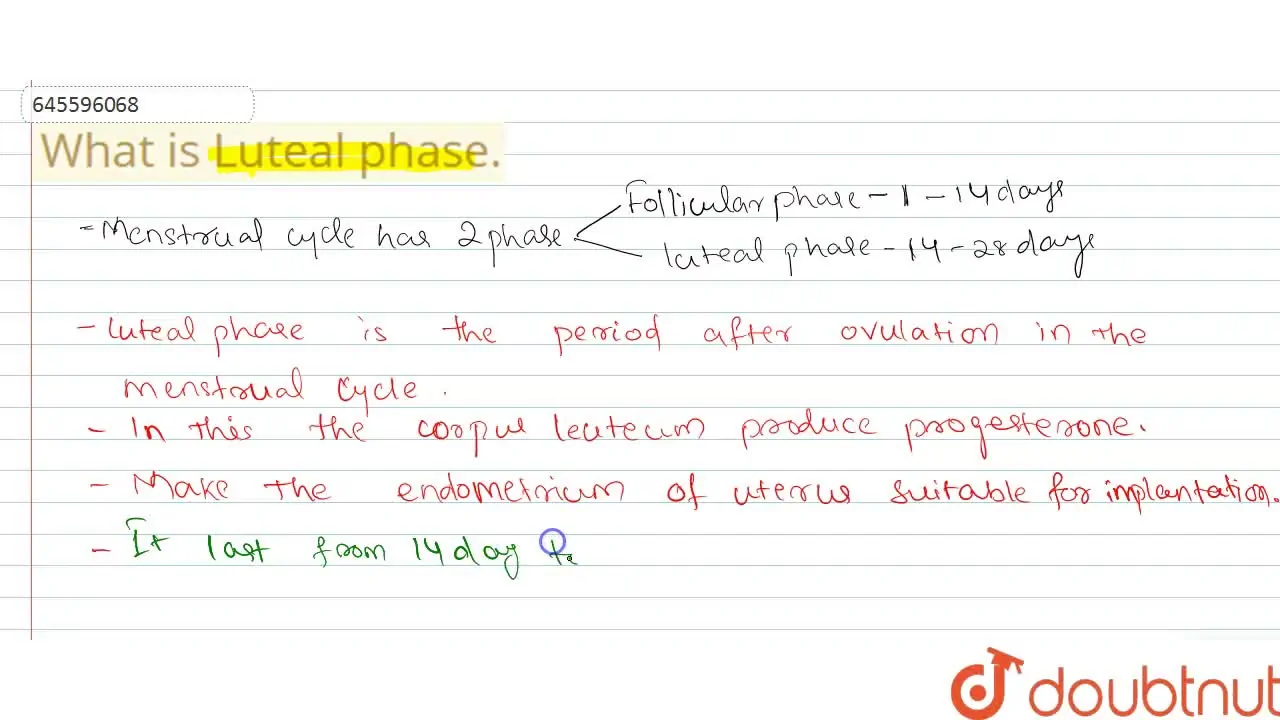 645596068
What is Luteal phase.
Follicular phase - 1 - 14 days
- Menstrual cycle has 2 phase
luteal phase - 14 - 28 days
- luteal phase is the period after ovulation in the
menstrual cycle.
- In this the corpus leuteum produce progesterone.
- Make the endometrium of uterus suitable for implantation.
- It last from 14 day to
doubtnut